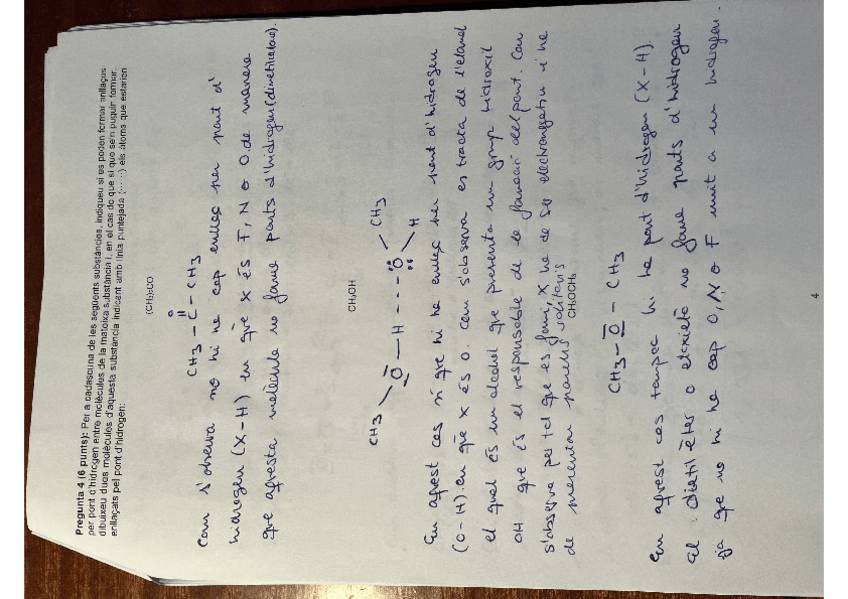 Pregunta 4 (6 punts): Per a cadascuna de les següents substàncies, indiqueu si es poden formar enllaços
per pont d'hidrogen entre molècules de la mateixa substància i, en el cas de que sí que se'n puguin formar,
dibuixeu dues molècules d'aquesta substància indicant amb línia puntejada (·····) els àtoms que estarien
enllaçats pel pont d'hidrogen:
(CH₃)₂CO
O
CH₃ – C – CH₃
Com s'observa no hi ha cap enllaç per pont d'
hidrogen (X-H) en què X és F, N o O de manera
que aquesta molècula no forma ponts d'hidrogen
CH₃OH
CH₃ O — H ---- O CH₃
H
En aquest cas sí que hi ha enllaç per pont d'hidrogen
(O-H) en què X és O. Com s'observa es tracta de l'etanol
el qual és un alcohol que presenta un grup hidroxil
OH que és el responsable de la formació del pont. Com
s'observa per tal que es formi, X ha de ser electronegatiu i ha
de presentar parells solitaris
CH₃OCH₃
CH₃ – O – CH₃
En aquest cas tampoc hi ha pont d'hidrogen (X-H).
El dietil èter o no forma ponts d'hidrogen
ja que no hi ha cap O, N o F unit a un hidrogen.
4